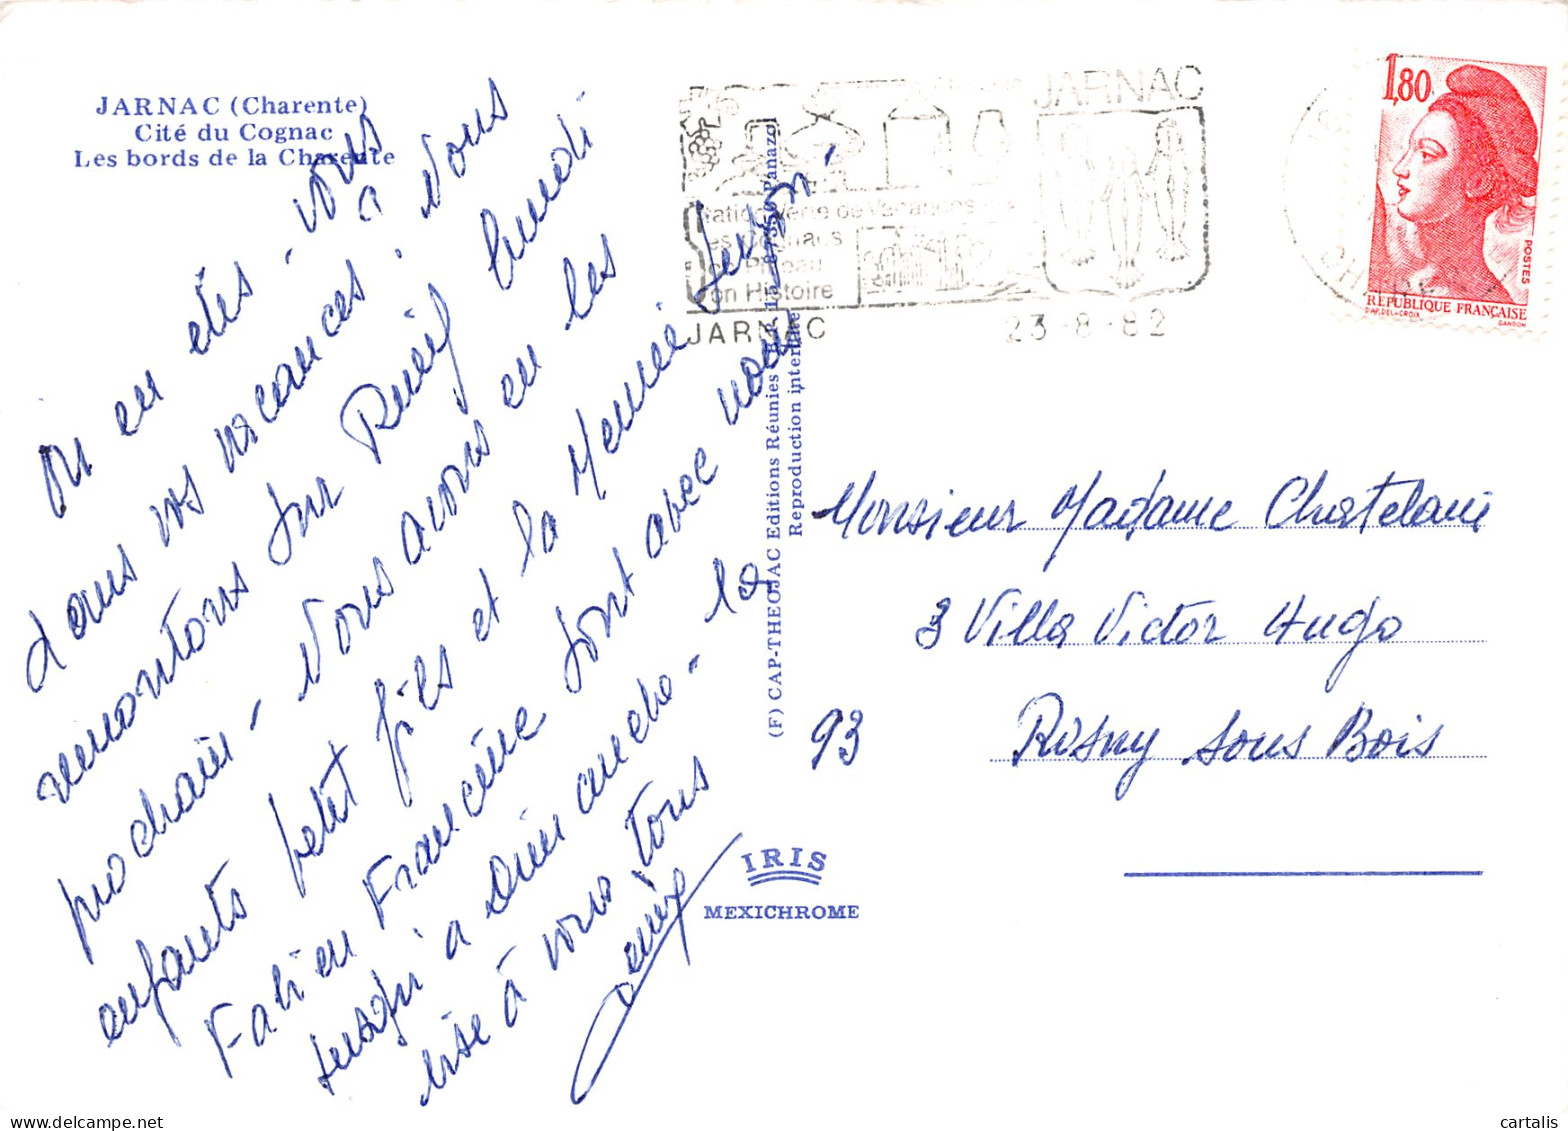 JARNAC (Charente)
Cité du Cognac
Les bords de la Charente
Ou en etes-vous
dans vos vacances? Nous
remontons sur Rueil lundi
prochain - Nous avons eu les
enfants petit fils et la
Fabien Francine sont avec nous
jusqu'a Dimanche - la
bise à vous tous
JARNAC
Station Verte de Vacances
Ses Cognacs
Son Pineau
Son Histoire
JARNAC
23-8-82
1,80
POSTES
RÉPUBLIQUE FRANÇAISE
D'AP. DELACROIX
GANDON
(F) CAP-THEOJAC Editions Réunies
Panazol
Reproduction interdite
Monsieur Madame Chatelain
3 Villa Victor Hugo
93 Rosny sous Bois
IRIS
MEXICHROME
cartalis